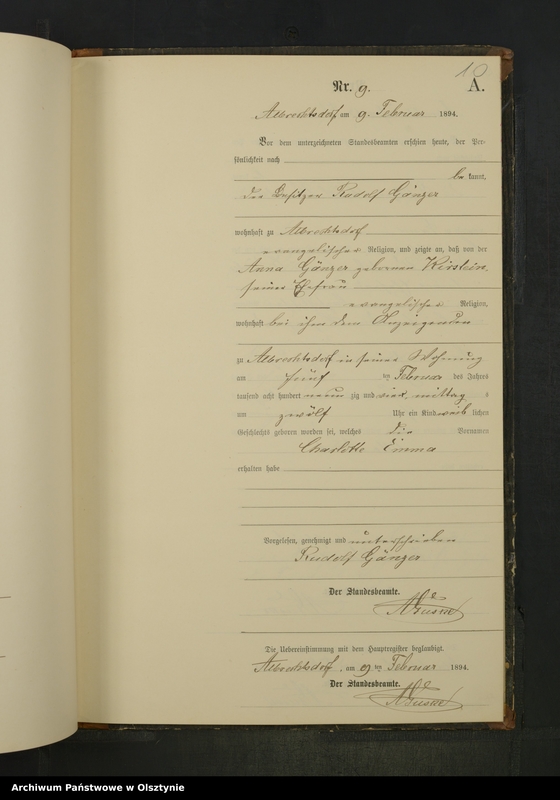 10
Nr. 9.
A.
Albrechtsdorf am 9. Februar 1894.
Vor dem unterzeichneten Standesbeamten erschien heute, der Per-
sönlichkeit nach
be kannt,
der Besitzer Rudolf Gänzer
wohnhaft zu Albrechtsdorf
evangelischer Religion, und zeigte an, daß von der
Anna Gänzer geborenen Kirstein,
seiner Ehefrau
evangelischer Religion,
wohnhaft bei ihm dem Anzeigenden
zu Albrechtsdorf in seiner Wohnung
am fünf ten Februar des Jahres
tausend acht hundert neun zig und vier, mittag s
um zwölf Uhr ein Kind weib lichen
Geschlechts geboren worden sei, welches die Vornamen
Charlotte Emma
erhalten habe
Vorgelesen, genehmigt und unterschrieben
Rudolf Gänzer
Der Standesbeamte.
Die Uebereinstimmung mit dem Hauptregister beglaubigt.
Albrechtsdorf, am 9 ten Februar 1894.
Der Standesbeamte.
Archiwum Państwowe w Olsztynie